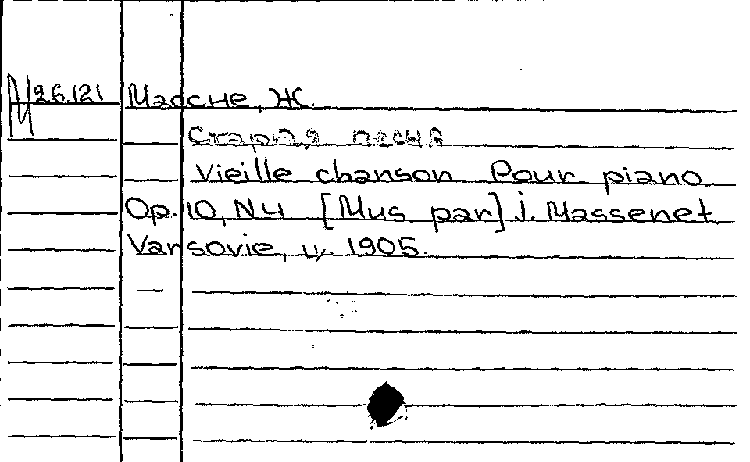 М 26.121 Массне, Ж.
Старая песня
Vieille chanson Pour piano
Op. 10, N4 [Mus par] J. Massenet
Varsovie, ц. 1905.